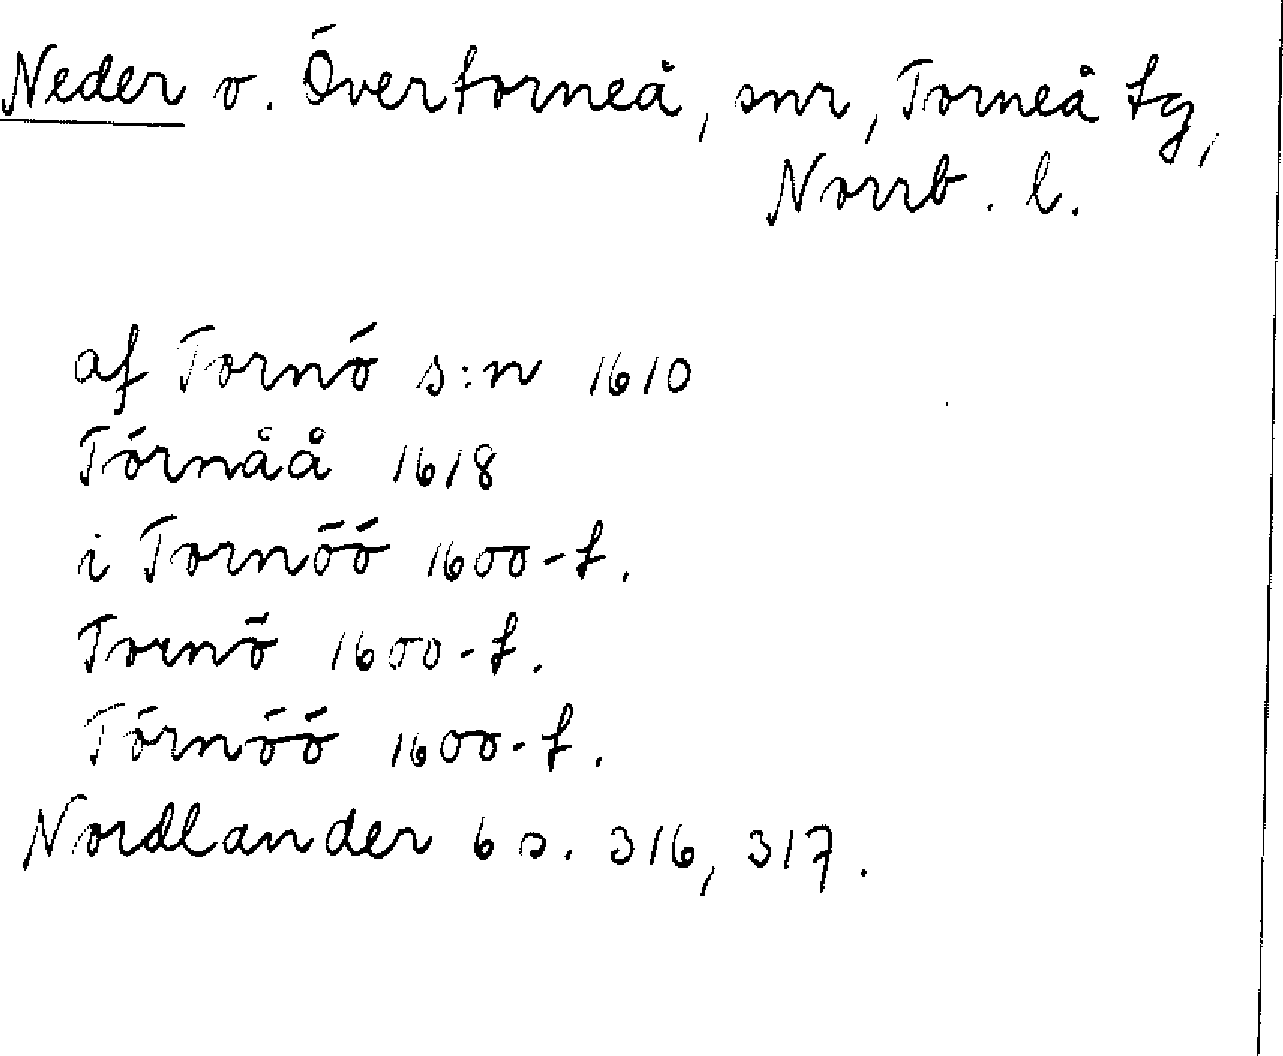 Neder o. Övertorneå, snr, Torneå tg,
Norrb. l.
af Tornö s:n 1610
Törnåå 1618
i Tornöö 1600-t.
Tornö 1600-t.
Törnöö 1600-t.
Nordlander 6 s. 316, 317.